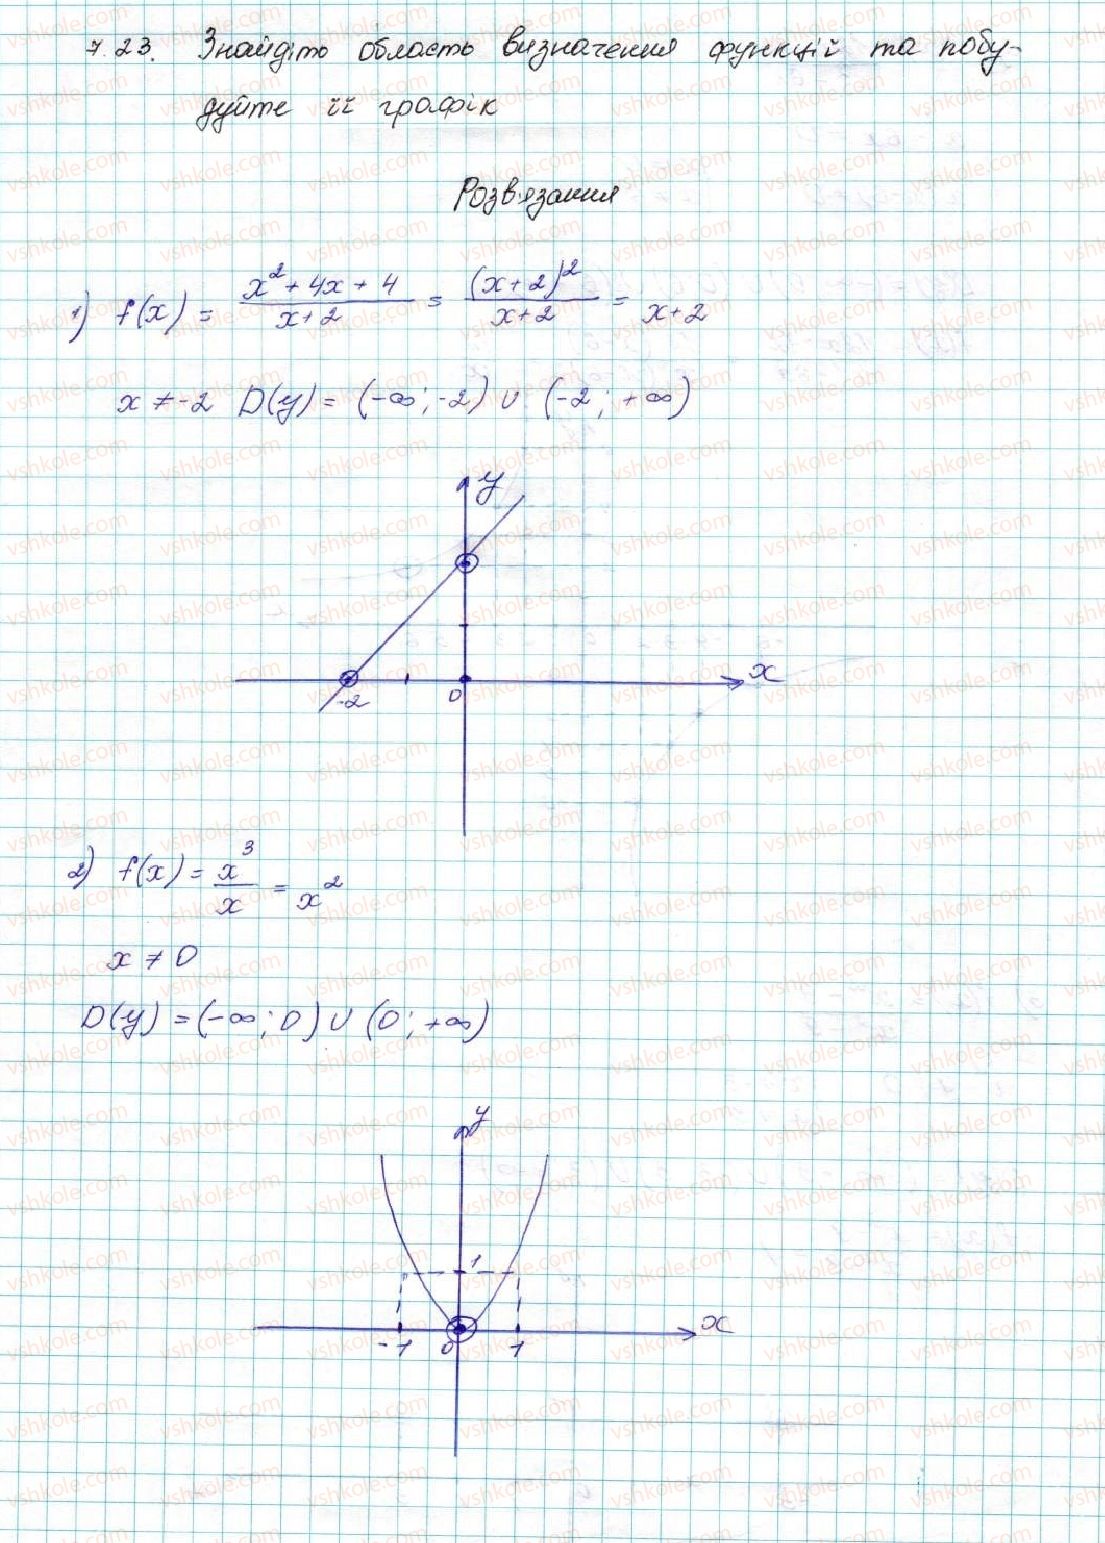 7.23. Знайдіть область визначення функцій та побу-
дуйте її графік
Розв'язання
1) f(x) = (x² + 4x + 4)/(x + 2) = (x + 2)²/(x + 2) = x + 2
x ≠ -2 D(y) = (-∞; -2) ∪ (-2; +∞)
y
x
-2 0
2) f(x) = x³/x = x²
x ≠ 0
D(y) = (-∞; 0) ∪ (0; +∞)
y
1
x
-1 0 1
vshkole.com